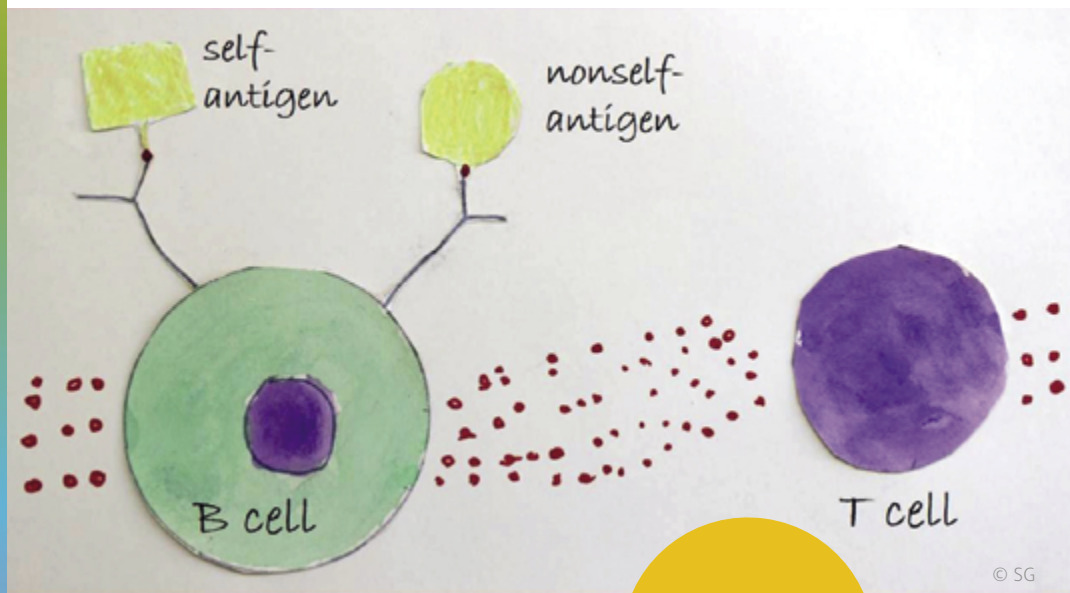 self-
antigen
nonself-
antigen
B cell
T cell
© SG